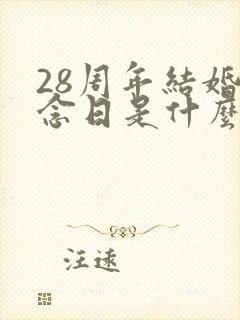 28周年結婚
念日是什麼
汪遠